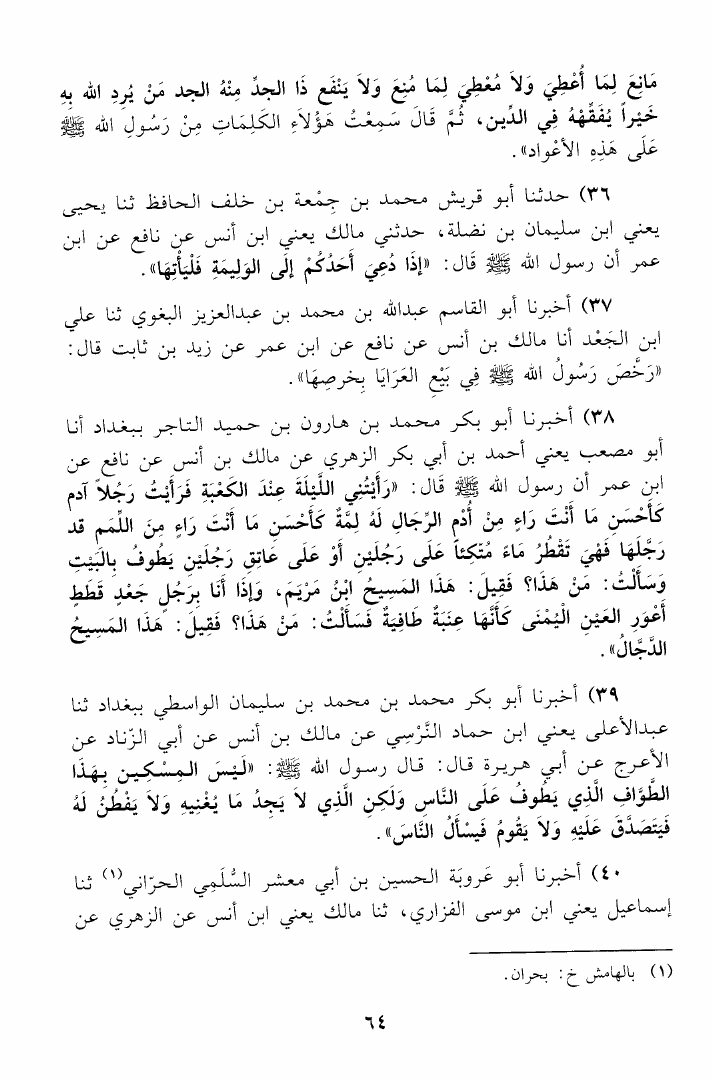 مَانِعَ لِمَا أُعْطِيَ وَلاَ مُعْطِيَ لِمَا مُنِعَ وَلاَ يَنْفَع ذَا الجدِّ مِنْهُ الجد مَنْ يُرِدِ الله بِهِ
خَيْراً يُفَقِّهْهُ فِي الدِّين، ثُمَّ قَالَ سَمِعْتُ هَؤُلاَءِ الكَلِمَاتِ مِنْ رَسُولِ الله ﷺ
عَلَى هَذِهِ الأعْواد».
٣٦) حدثنا أبو قريش محمد بن جِمْعة بن خلف الحافظ ثنا يحيى
يعني ابن سليمان بن نضلة، حدثني مالك يعني ابن أنس عن نافع عن ابن
عمر أن رسول الله ﷺ قَال: «إِذَا دُعِيَ أَحَدُكُمْ إِلَى الوَلِيمَةِ فَلْيَأْتِهَا».
٣٧) أخبرنا أبو القاسم عبدالله بن محمد بن عبدالعزيز البغوي ثنا علي
ابن الجَعْد أنا مالك بن أنس عن نافع عن ابن عمر عن زيد بن ثابت قال:
«رَخَّصَ رَسُولُ الله ﷺ فِي بَيْعِ العَرَايَا بِخرصِهَا».
٣٨) أخبرنا أبو بكر محمد بن هارون بن حميد التاجر ببغداد أنا
أبو مصعب يعني أحمد بن أبي بكر الزهري عن مالك بن أنس عن نافع عن
ابن عمر أن رسول الله ﷺ قَال: «رَأَيْتُنِي اللَّيْلَةَ عِنْدَ الكَعْبَةِ فَرَأَيْتُ رَجُلاً آدم
كَأَحْسَنِ مَا أَنْتَ رَاءٍ مِنْ أُدْمِ الرِّجَالِ لَهُ لِمَّةٌ كَأَحْسَنِ مَا أَنْتَ رَاءٍ مِنَ اللِّمَمِ قد
رَجَّلَهَا فَهْيَ تَقْطُرُ مَاءً مُتَّكِئاً عَلَى رَجُلَيْنِ أَوْ عَلَى عَاتِقِ رَجُلَيْنِ يَطُوفُ بِالبَيْتِ
وَسَأَلْتُ: مَنْ هَذَا؟ فَقِيلَ: هَذَا المَسِيحُ ابْنُ مَرْيَمَ، وَإِذَا أَنَا بِرَجُلٍ جَعْدٍ قَطَطٍ
أَعْوَرِ العَيْنِ الْيُمْنَى كَأَنَّهَا عِنَبَةٌ طَافِيَةٌ فَسَأَلْتُ: مَنْ هَذَا؟ فَقِيلَ: هَذَا المَسِيحُ
الدَّجَّالُ».
٣٩) أخبرنا أبو بكر محمد بن محمد بن سليمان الواسطي ببغداد ثنا
عبدالأعلى يعني ابن حماد النَّرْسِي عن مالك بن أنس عن أبي الزّناد عن
الأعرج عن أبي هريرة قال: قال رسول الله ﷺ: «لَيْسَ المِسْكِين بِهَذَا
الطَّوَّافِ الَّذِي يَطُوفُ عَلَى النَّاسِ وَلَكِنِ الَّذِي لاَ يَجِدُ مَا يُغْنِيهِ وَلاَ يَفْطُنُ لَهُ
فَيَتَصَدَّقَ عَلَيْهِ وَلاَ يَقُومُ فَيسْأَلُ النَّاسَ».
٤٠) أخبرنا أبو عَروبَة الحسين بن أبي معشر السُّلَمِي الحرّاني(١) ثنا
إسماعيل يعني ابن موسى الفزاري، ثنا مالك يعني ابن أنس عن الزهري عن
(١) بالهامش خ: بحران.
٦٤